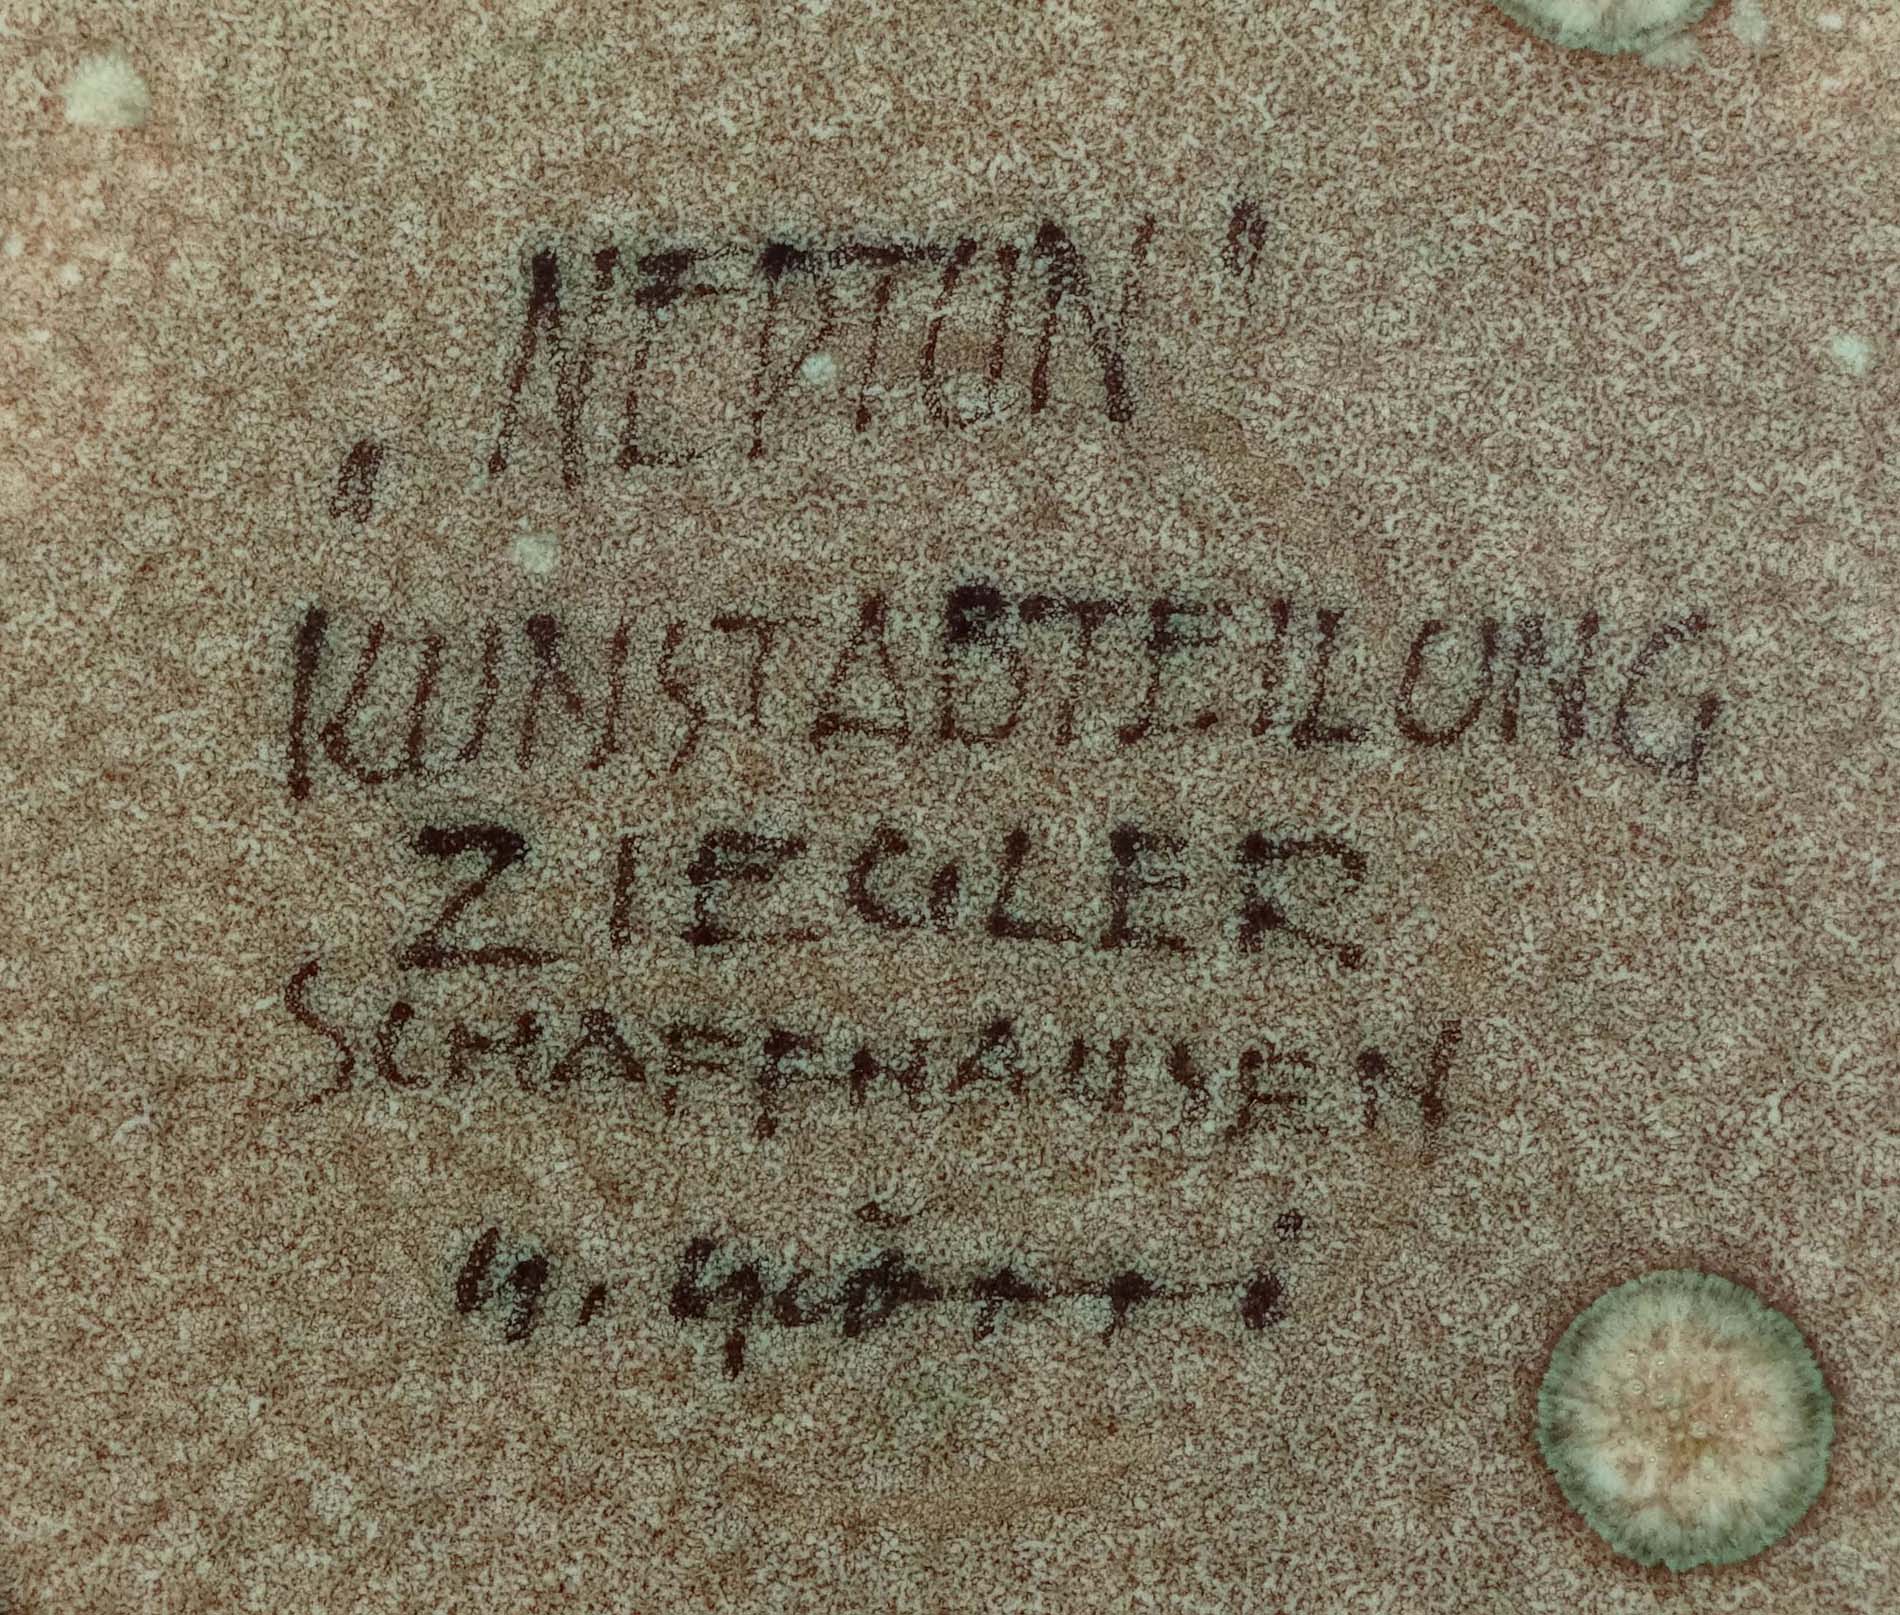 „NEPTUN"
KUNSTABTEILUNG
ZIEGLER
SCHAFFHAUSEN